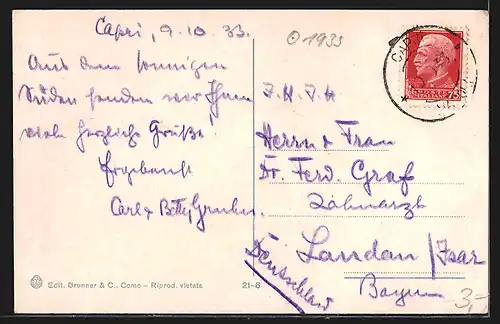 Capri, 9.10.33.
Aus dem sonnigen
Süden senden wir Ihnen
viele herzliche Grüße!
Ergebenst
Carl & Betty Gruber
1933
Herrn & Frau
Dr. Ferd. Graf
Zahnarzt
Landau / Isar
Bayern
Deutschland
CAPRI
Edit. Brunner & C., Como - Riprod. vietata
21-6
3,-